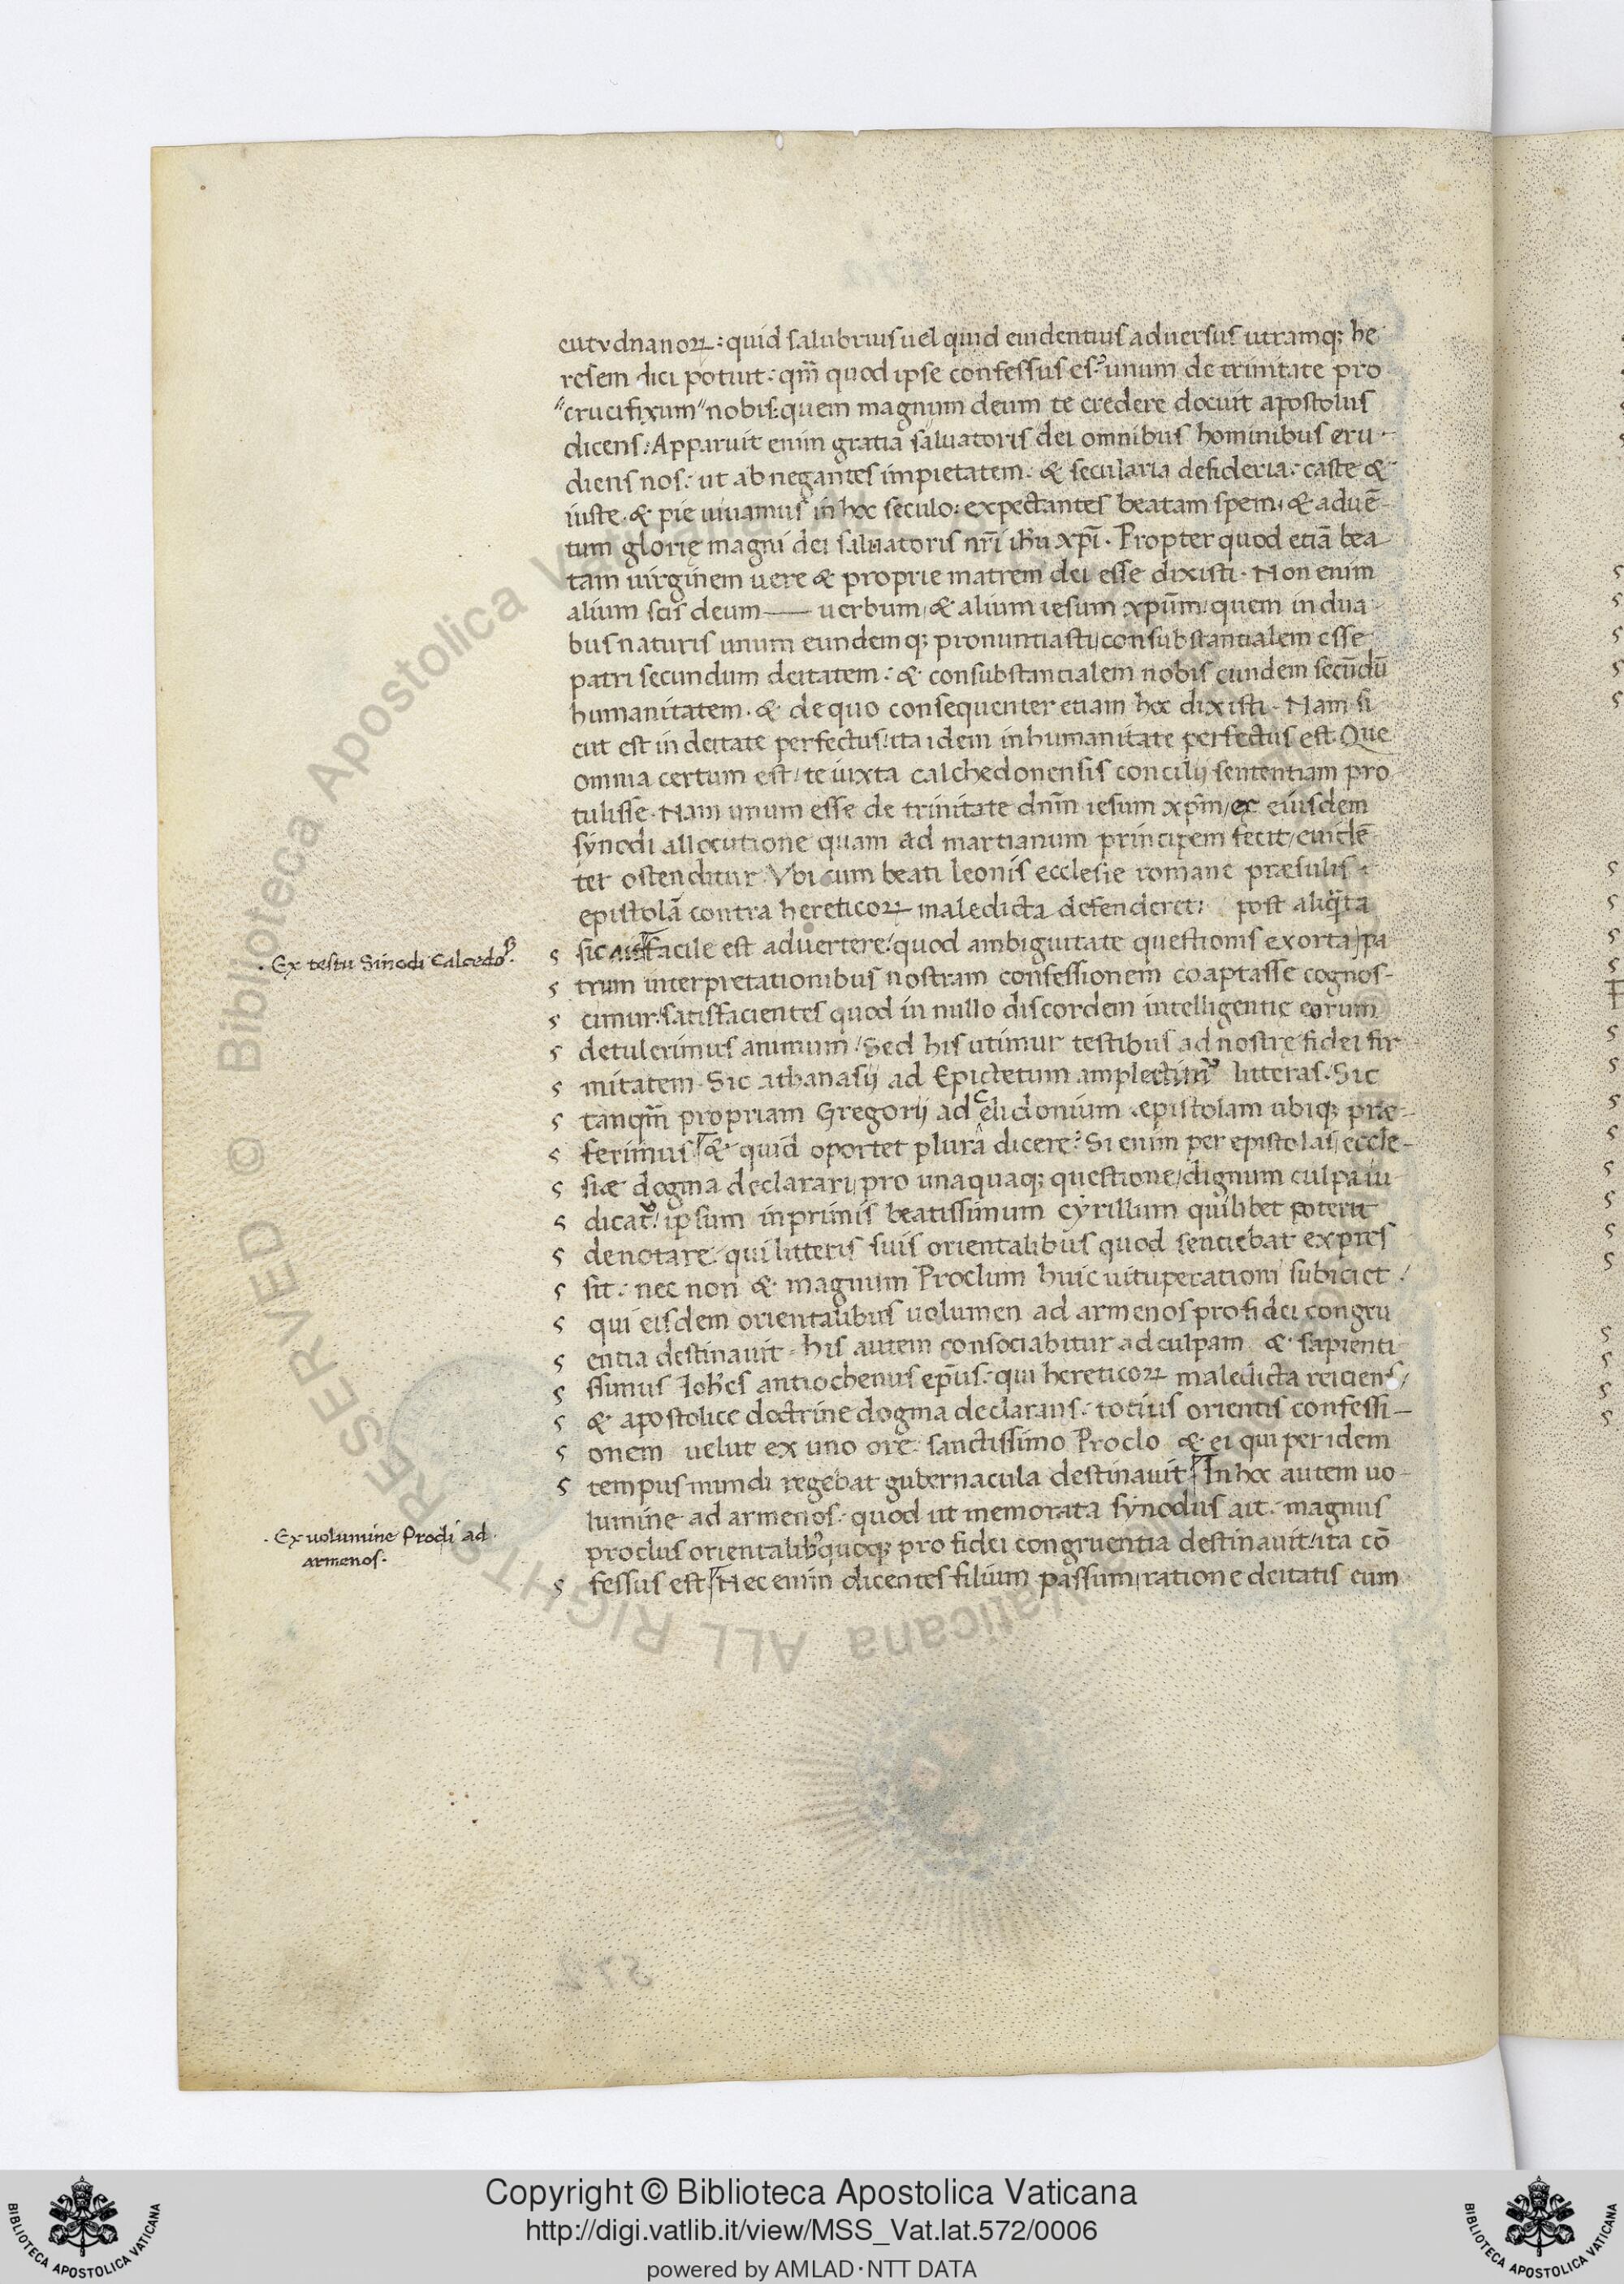 eutẏchianoꝝ: quid salubrius uel quid euidentius aduersus utramqꝫ he
resem dici potuit: qm̄ quod ipse confessus es: unum de trinitate pro
"crucifixum" nobis: quem magnum deum te credere docuit apostolus
dicens: Apparuit enim gratia saluatoris dei omnibus hominibus eru-
diens nos: ut abnegantes impietatem: & secularia desideria: caste &
iuste. & pie uiuamus in hoc seculo: expectantes beatam spem. & aduē-
tum glorię magni dei saluatoris nr̄i ihu xp̄i. Propter quod etiā bea
tam uirginem uere & proprie matrem dei esse dixisti. Non enim
alium scis deum — uerbum, & alium iesum xp̄um, quem in dua
bus naturis unum eundemqꝫ pronuntiasti, consubstantialem esse
patri secundum deitatem: & consubstantialem nobis eundem secūdū
humanitatem. & de quo consequenter etiam hoc dixisti. Nam si
cut est in deitate perfectus: ita idem in humanitate perfectus est. Que
omnia certum est, te iuxta calchedonensis concilij sententiam pro
tulisse. Nam unum esse de trinitate dnm̄ iesum xp̄m, ex eiusdem
sẏnodi allocutione quam ad martianum principem fecit, euidē
ter ostenditur. Vbi cum beati leonis ecclesie romane præsulis
epistolā contra hereticoꝝ maledicta defenderet: post aliq̄ta
sic ait Facile est aduertere: quod ambiguitate questionis exorta, pa
trum interpretationibus nostram confessionem coaptasse cognos-
cimur: satisfacientes quod in nullo discordem intelligentię eorum
detulerimus animum. Sed his utimur testibus ad nostrę fidei fir
mitatem. Sic athanasij ad Epictetum amplectimꝰ litteras. Sic
tanqm̄ propriam Gregorij ad celidonium epistolam ubiqꝫ præ-
ferimus & quid oportet plura dicere? Si enim per epistolas, eccle-
siæ dogma declarari, pro unaquaqꝫ questione, dignum culpa iu
dicatꝰ, ipsum inprimis beatissimum cẏrillum quilibet poterit
denotare: qui litteris suis orientalibus quod sentiebat expres
sit: nec non & magnum Proclum huic uituperationi subiciet,
qui eisdem orientalibus uolumen ad armenos pro fidei congru
entia destinauit. his autem consociabitur ad culpam & sapienti
ssimus Ioh̄es antiochenus ep̄us: qui hereticoꝝ maledicta reiciens,
& apostolice doctrine dogma declarans: totius orientis confessi-
onem uelut ex uno ore: sanctissimo Proclo & ei qui per idem
tempus mundi regebat gubernacula destinauit. In hoc autem uo-
lumine ad armenos: quod ut memorata sẏnodus ait: magnus
proclus orientalibꝰ quoqꝫ pro fidei congruentia destinauit, ita cō
fessus est Nec enim dicentes filium passum, ratione deitatis eum
. Ex testu Sinodi Calcedo .
. Ex uolumine Procli ad .
armenos .
572
Copyright © Biblioteca Apostolica Vaticana
http://digi.vatlib.it/view/MSS_Vat.lat.572/0006
powered by AMLAD·NTT DATA
BIBLIOTECA APOSTOLICA VATICANA
BIBLIOTECA APOSTOLICA VATICANA
© Biblioteca Apostolica Vaticana ALL RIGHTS RESERVED